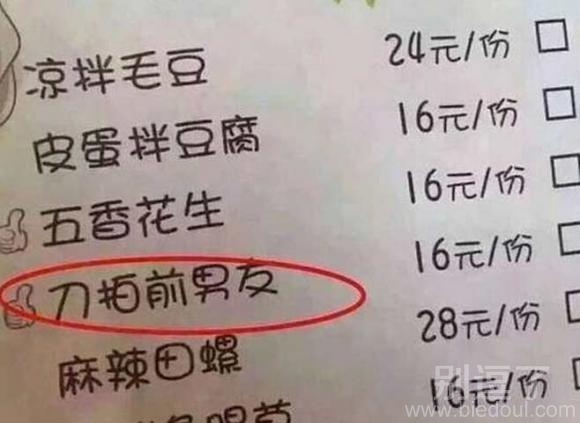 凉拌毛豆 24元/份
皮蛋拌豆腐 16元/份
五香花生 16元/份
刀拍前男友 16元/份
麻辣田螺 28元/份
16元/份
别逗了
www.biedoul.com